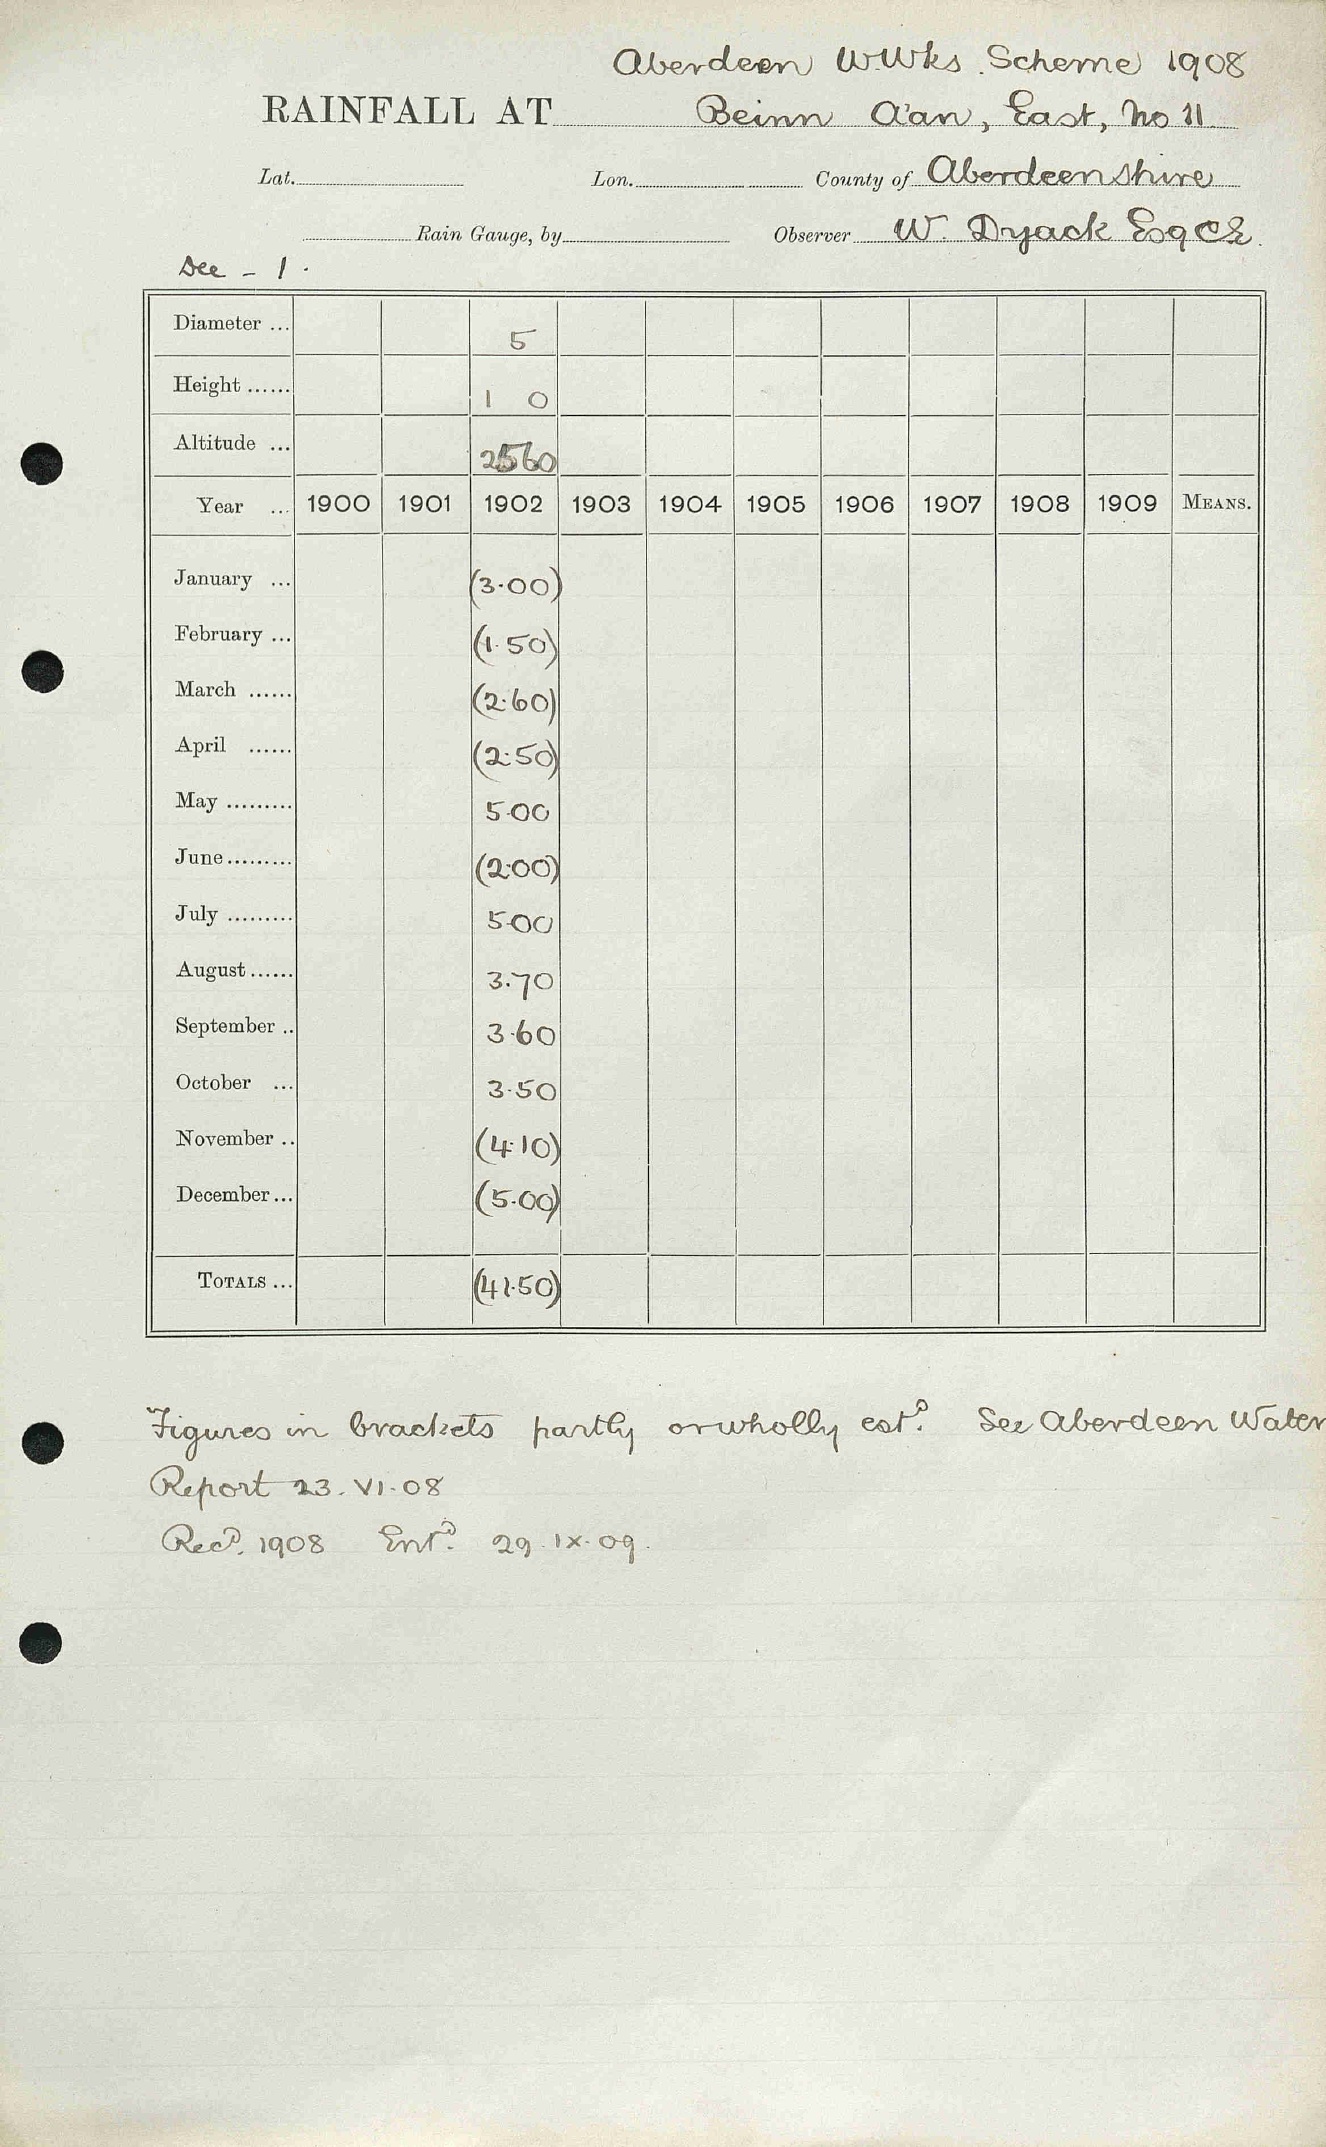 Aberdeen W.Wks. Scheme 1908
RAINFALL AT Beinn A'an, East, No 11
Lat. Lon. County of Aberdeenshire
Rain Gauge, by Observer W. Dyack Esq CE.
Dee - 1.
Diameter ... 5
Height ...... 1 0
Altitude ... 2560
Year ... 1900 1901 1902 1903 1904 1905 1906 1907 1908 1909 MEANS.
January ... (3.00)
February ... (1.50)
March ...... (2.60)
April ...... (2.50)
May ......... 5.00
June ......... (2.00)
July ......... 5.00
August ...... 3.70
September .. 3.60
October ... 3.50
November .. (4.10)
December ... (5.00)
TOTALS ... (41.50)
Figures in brackets partly or wholly estd. See Aberdeen Water
Report 23.VI.08
Recd. 1908 Entd. 29.IX.09.